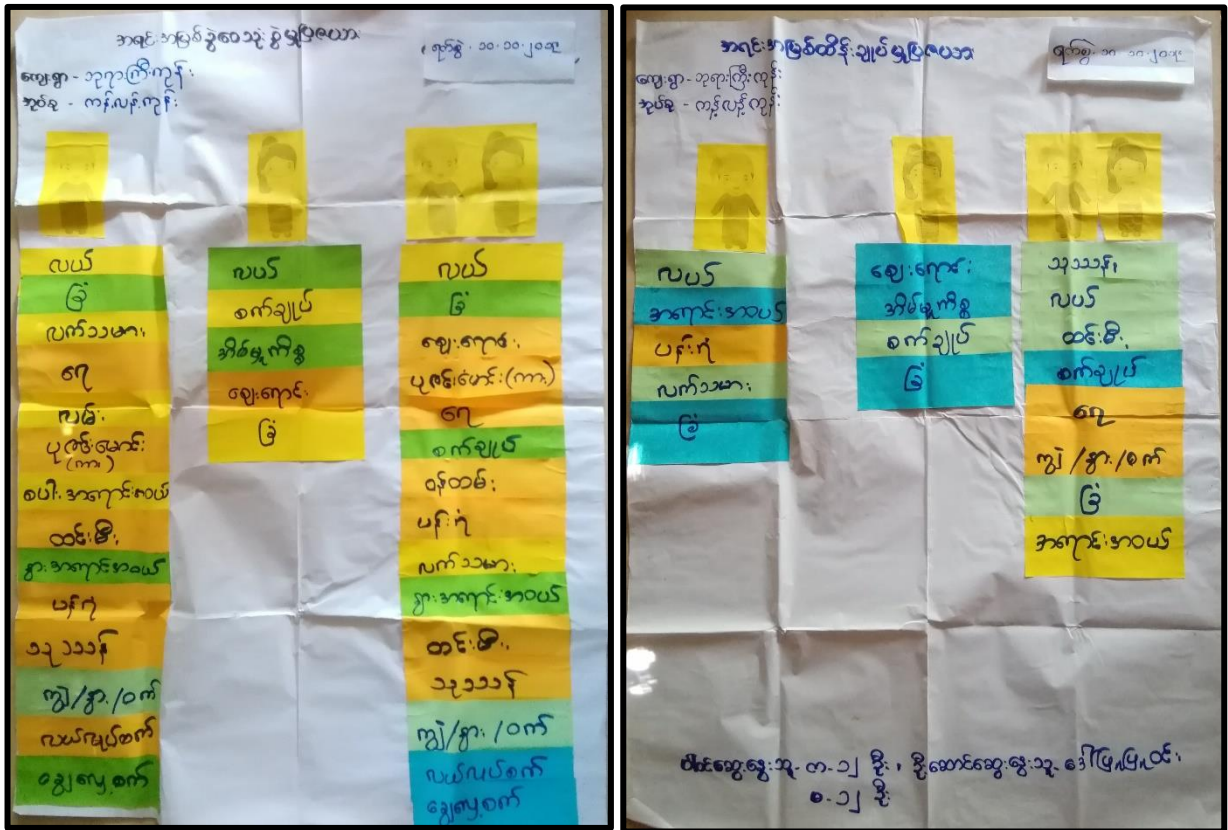 အရင်းအမြစ်ခွဲဝေသုံးစွဲမှုပြဇယား
ရက်စွဲ၊ ၁၀-၁၀-၂၀၁၉
ကျေးရွာ - ဘုရားကြီးကုန်း
အုပ်စု - ကန့်လန့်ကုန်း
လယ်
ခြံ
လက်သမား
ရေ
လမ်း
ပုဇွန်မောင်း
(ကား)
စပါးအရောင်းဝယ်
ထင်းမီး
နွားအရောင်းအဝယ်
ပန်းရံ
သုဿန်
ကျွဲ/နွား/ဝက်
လယ်လုပ်စက်
ခြွေလှေ့စက်
လယ်
စက်ချုပ်
အိမ်မှုကိစ္စ
ဈေးရောင်း
ခြံ
လယ်
ခြံ
ဈေးရောင်း
ပုဇွန်မောင်း(ကား)
ရေ
စက်ချုပ်
ဝန်ထမ်း
ပန်းရံ
လက်သမား
နွားအရောင်းအဝယ်
ထင်းမီး
သုဿန်
ကျွဲ/နွား/ဝက်
လယ်လုပ်စက်
ခြွေလှေ့စက်
အရင်းအမြစ်ထိန်းချုပ်မှုပြဇယား
ရက်စွဲ၊ ၁၀-၁၀-၂၀၁၉
ကျေးရွာ - ဘုရားကြီးကုန်း
အုပ်စု - ကန့်လန့်ကုန်း
လယ်
အရောင်းအဝယ်
ပန်းရံ
လက်သမား
ခြံ
ဈေးရောင်း
အိမ်မှုကိစ္စ
စက်ချုပ်
ခြံ
သုဿန်
လယ်
ထင်းမီး
စက်ချုပ်
ရေ
ကျွဲ/နွား/ဝက်
ခြံ
အရောင်းအဝယ်
ပါဝင်ဆွေးနွေးသူ - က-၁၂ ဦး၊ ဦးဆောင်ဆွေးနွေးသူ - ဒေါ်ဖြူဖြူဝင်း
မ-၁၂ ဦး